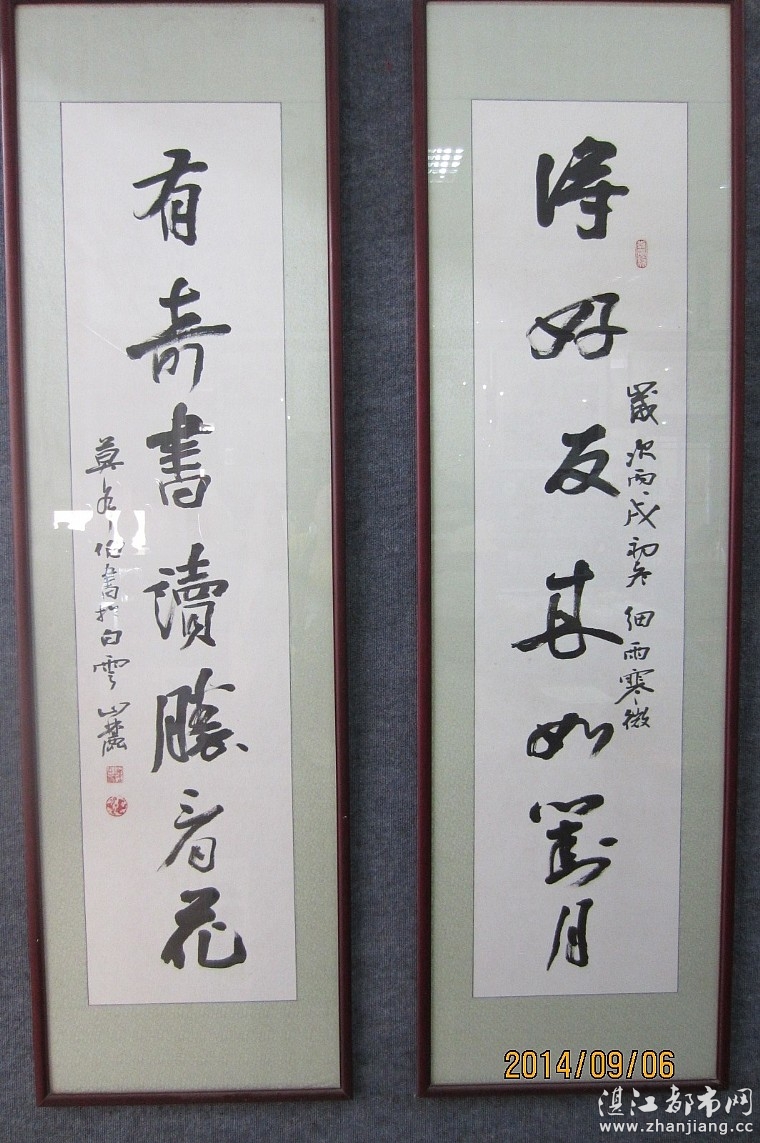 得好友来如對月
歲次丙戌初冬細雨寒微
有奇書讀勝看花
書於白雲山麓
2014/09/06
湛江都市网
www.zhanjiang.cc